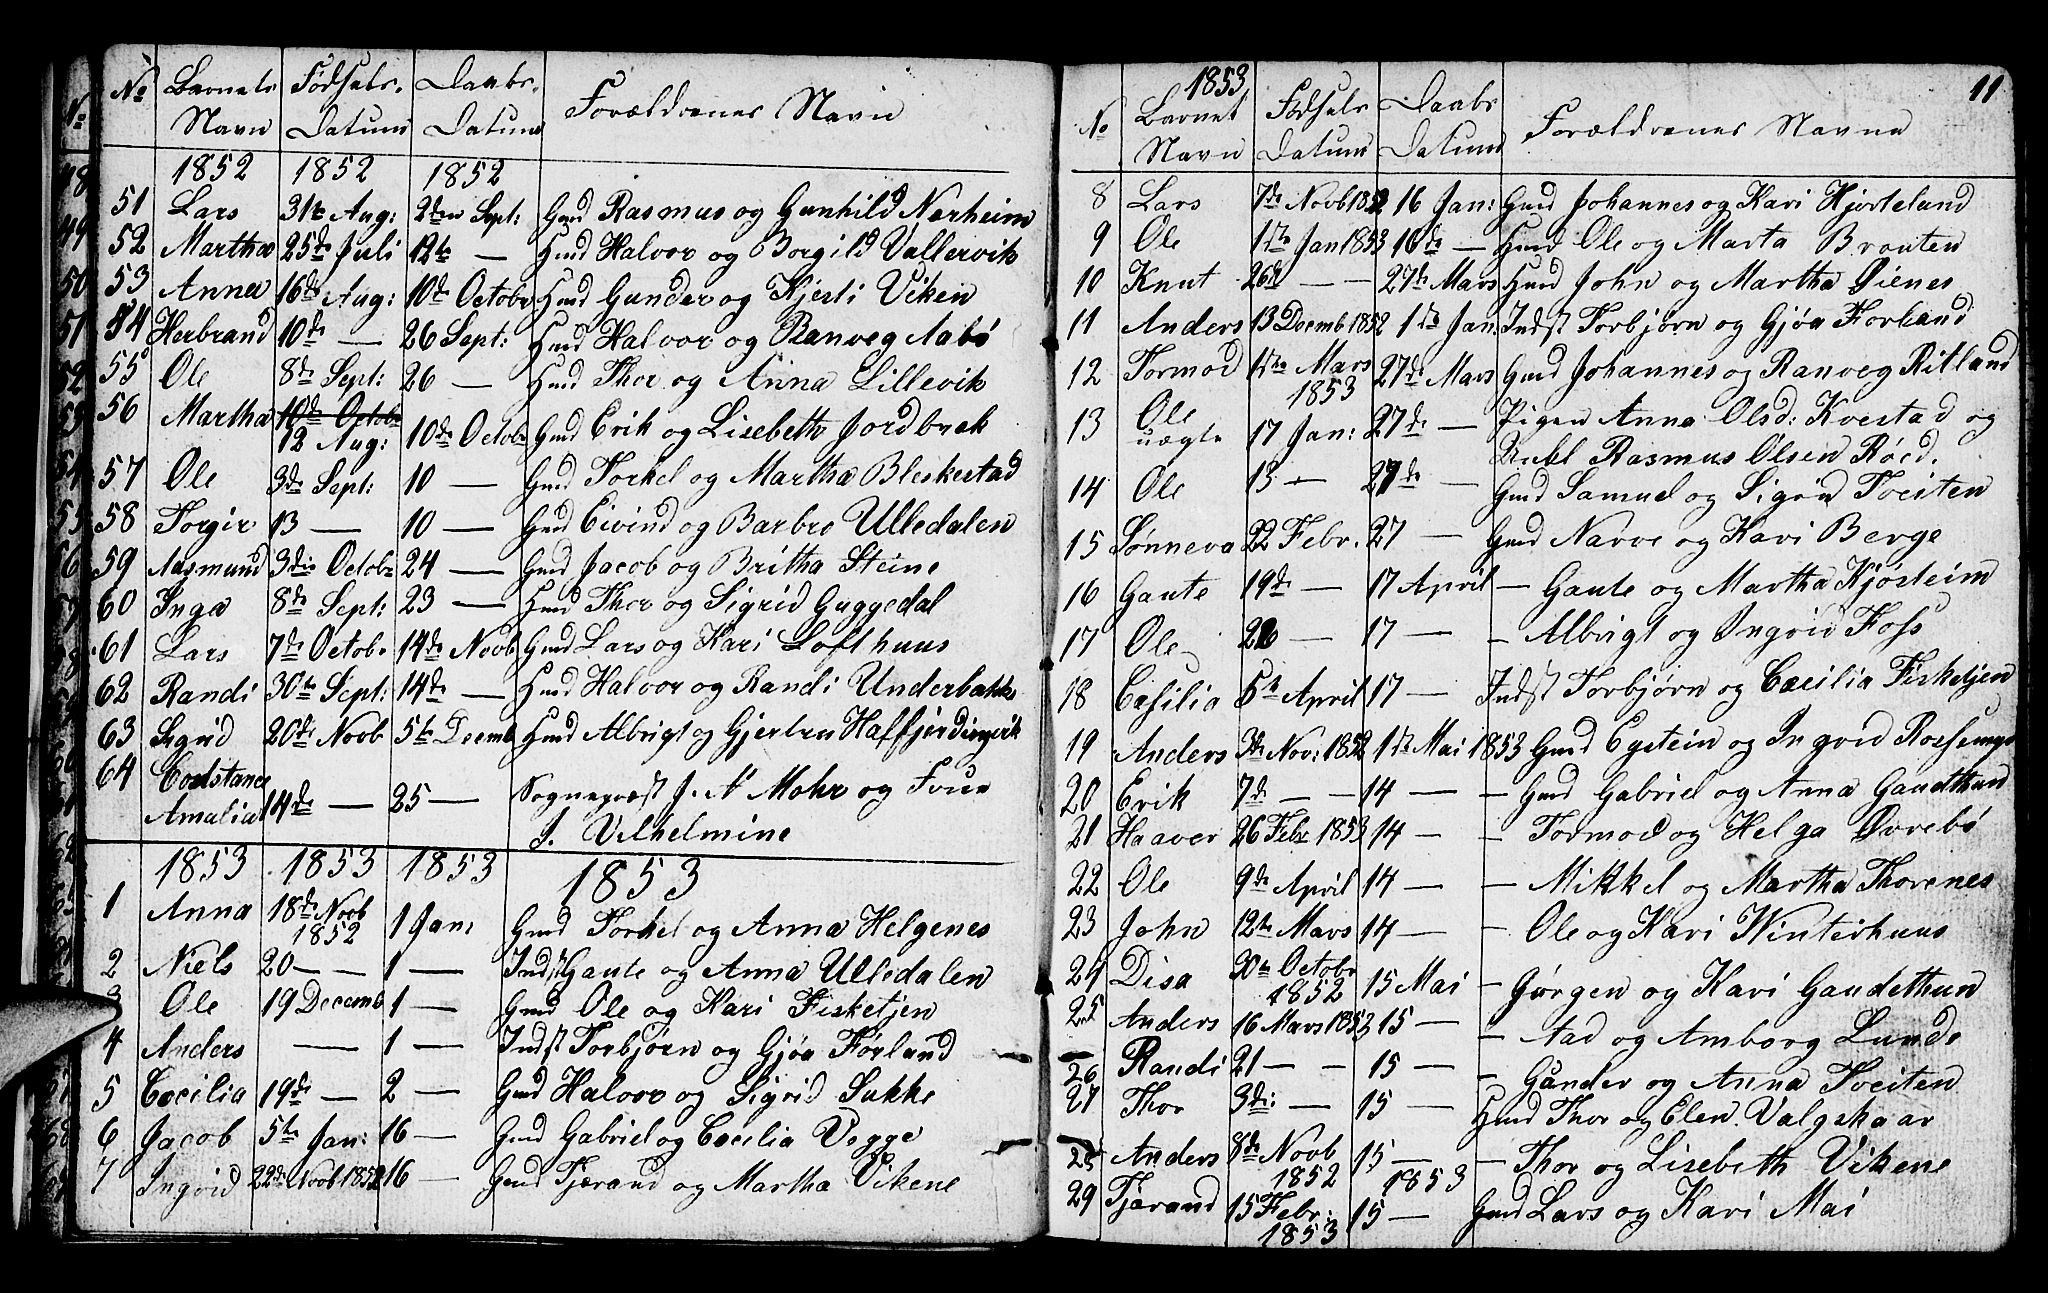 No Barnets Fødsels- Daabs- Forældrenes Navn
Navn Datum Datum
1852 1852 1852
51 Lars 31te Aug: 2den Sept: Gmd Rasmus og Gunhild Nærheim
52 Martha 25de Juli 12te — Hmd Halvor og Borgild Vallervik
53 Anna 16de Aug: 10de Octobr Hmd Gunder og Kjersti Viken
54 Herbrand 10de — 26 Sept: Hmd Halvor og Ranveg Aabø
55 Ole 8de Sept: 26 — Hmd Thor og Anna Lillevik
56 Martha 10de Octobr 12 Aug: 10de Octobr Gmd Erik og Lisebeth Jordbræk
57 Ole 3de Sept: 10 — Gmd Torkel og Martha Bleskestad
58 Torgir 13 — 10 — Gmd Eivind og Barbro Ulledalen
59 Aasmund 3die Octobr 24 — Gmd Jacob og Britha Steine
60 Inga 8de Sept: 23 — Hmd Thor og Sigrid Guggedal
61 Lars 7de Octobr 14de Novb Gmd Lars og Kari Lofthuus
62 Randi 30te Sept: 14de — Hmd Halvor og Randi Underbakke
63 Sigrid 20de Novb 5te Decemb Hmd Albrigt og Gjertru Haffjerdingvik
64 Constance
Amalia 14de — 25 — Sognepræst J. A. Mohr og Frue
J. Vilhelmine
1853 1853 1853 1853
1 Anna 18de Novb 1852 1 Jan: Gmd Torkel og Anna Helgenes
2 Niels 20 — — 1 — Indst Gaute og Anna Ulledalen
3 Ole 19 Decemb 1 — Gmd Ole og Kari Fisketjen
4 Anders — 1 — Indst Torbjørn og Gjøa Førland
5 Cecilia 19de — 2 — Gmd Halvor og Sigrid Sukke
6 Jacob 5te Jan: 16 — Gmd Gabriel og Cecilia Vegge
7 Ingrid 22de Novb 1852 16 — Gmd Tjærand og Martha Vikene
11
1853
No Barnet Fødsels Daabs Forældrenes Navne
Navn Datum Datum
8 Lars 7de Novb 1852 16 Jan: Gmd Johannes og Kari Hjorteland
9 Ole 1ste Jan 1853 16de — Hmd Ole og Marta Brouten
10 Knut 26de — — 27de Mars Hmd John og Martha Øienes
11 Anders 13 Decemb 1852 1ste Jan. Indst Torbjørn og Gjøa Forland
12 Tormod 1ste Mars 1853 27de Mars Gmd Johannes og Ranveg Ritland
13 Ole uægte 17 Jan: 27de — Pigen Anna Olsd: Kvestad og
Rubl Rasmus Olsen Røed.
14 Ole 13 — 27de — Gmd Samuel og Sigrid Tveiten
15 Sønneva 22 Febr. 27 — Gmd Narve og Kari Berge
16 Gaute 19de — 17 April — Gaute og Martha Kjøsteim
17 Ole 26 — 17 — — Albrigt og Ingrid Foss
18 Cesilia 5te April 17 — Indst Torbjørn og Cecilia Fisketjen
19 Anders 3de Nov: 1852 1ste Mai 1853 Gmd Egstein og Ingrid
20 Erik 7de — — 14 — — Gmd Gabriel og Anna Gaudthun
21 Haaver 26 Febr 1853 14 — — Tormod og Helga Øvrebø
22 Ole 9de April 14 — — Mikkel og Martha Thorenes
23 John 12te Mars 14 — — Ole og Kari Winterhuus
24 Disa 30te Octobr 1852 15 Mai — Gørgen og Kari Gaudethun
25 Anders 16 Mars 1853 15 — — Aad og Amborg Lunde
26 Randi 21 — — 15 — — Gunder og Anna Tveiten
27 Thor 3die: — 15 — Hmd Thor og Elen Valgskaar
28 Anders 8de Novb 1852 15 — — Thor og Lisebeth Vikene
1853
29 Tjærand 15 Febr: 1853 15 — Gmd Lars og Kari Mai